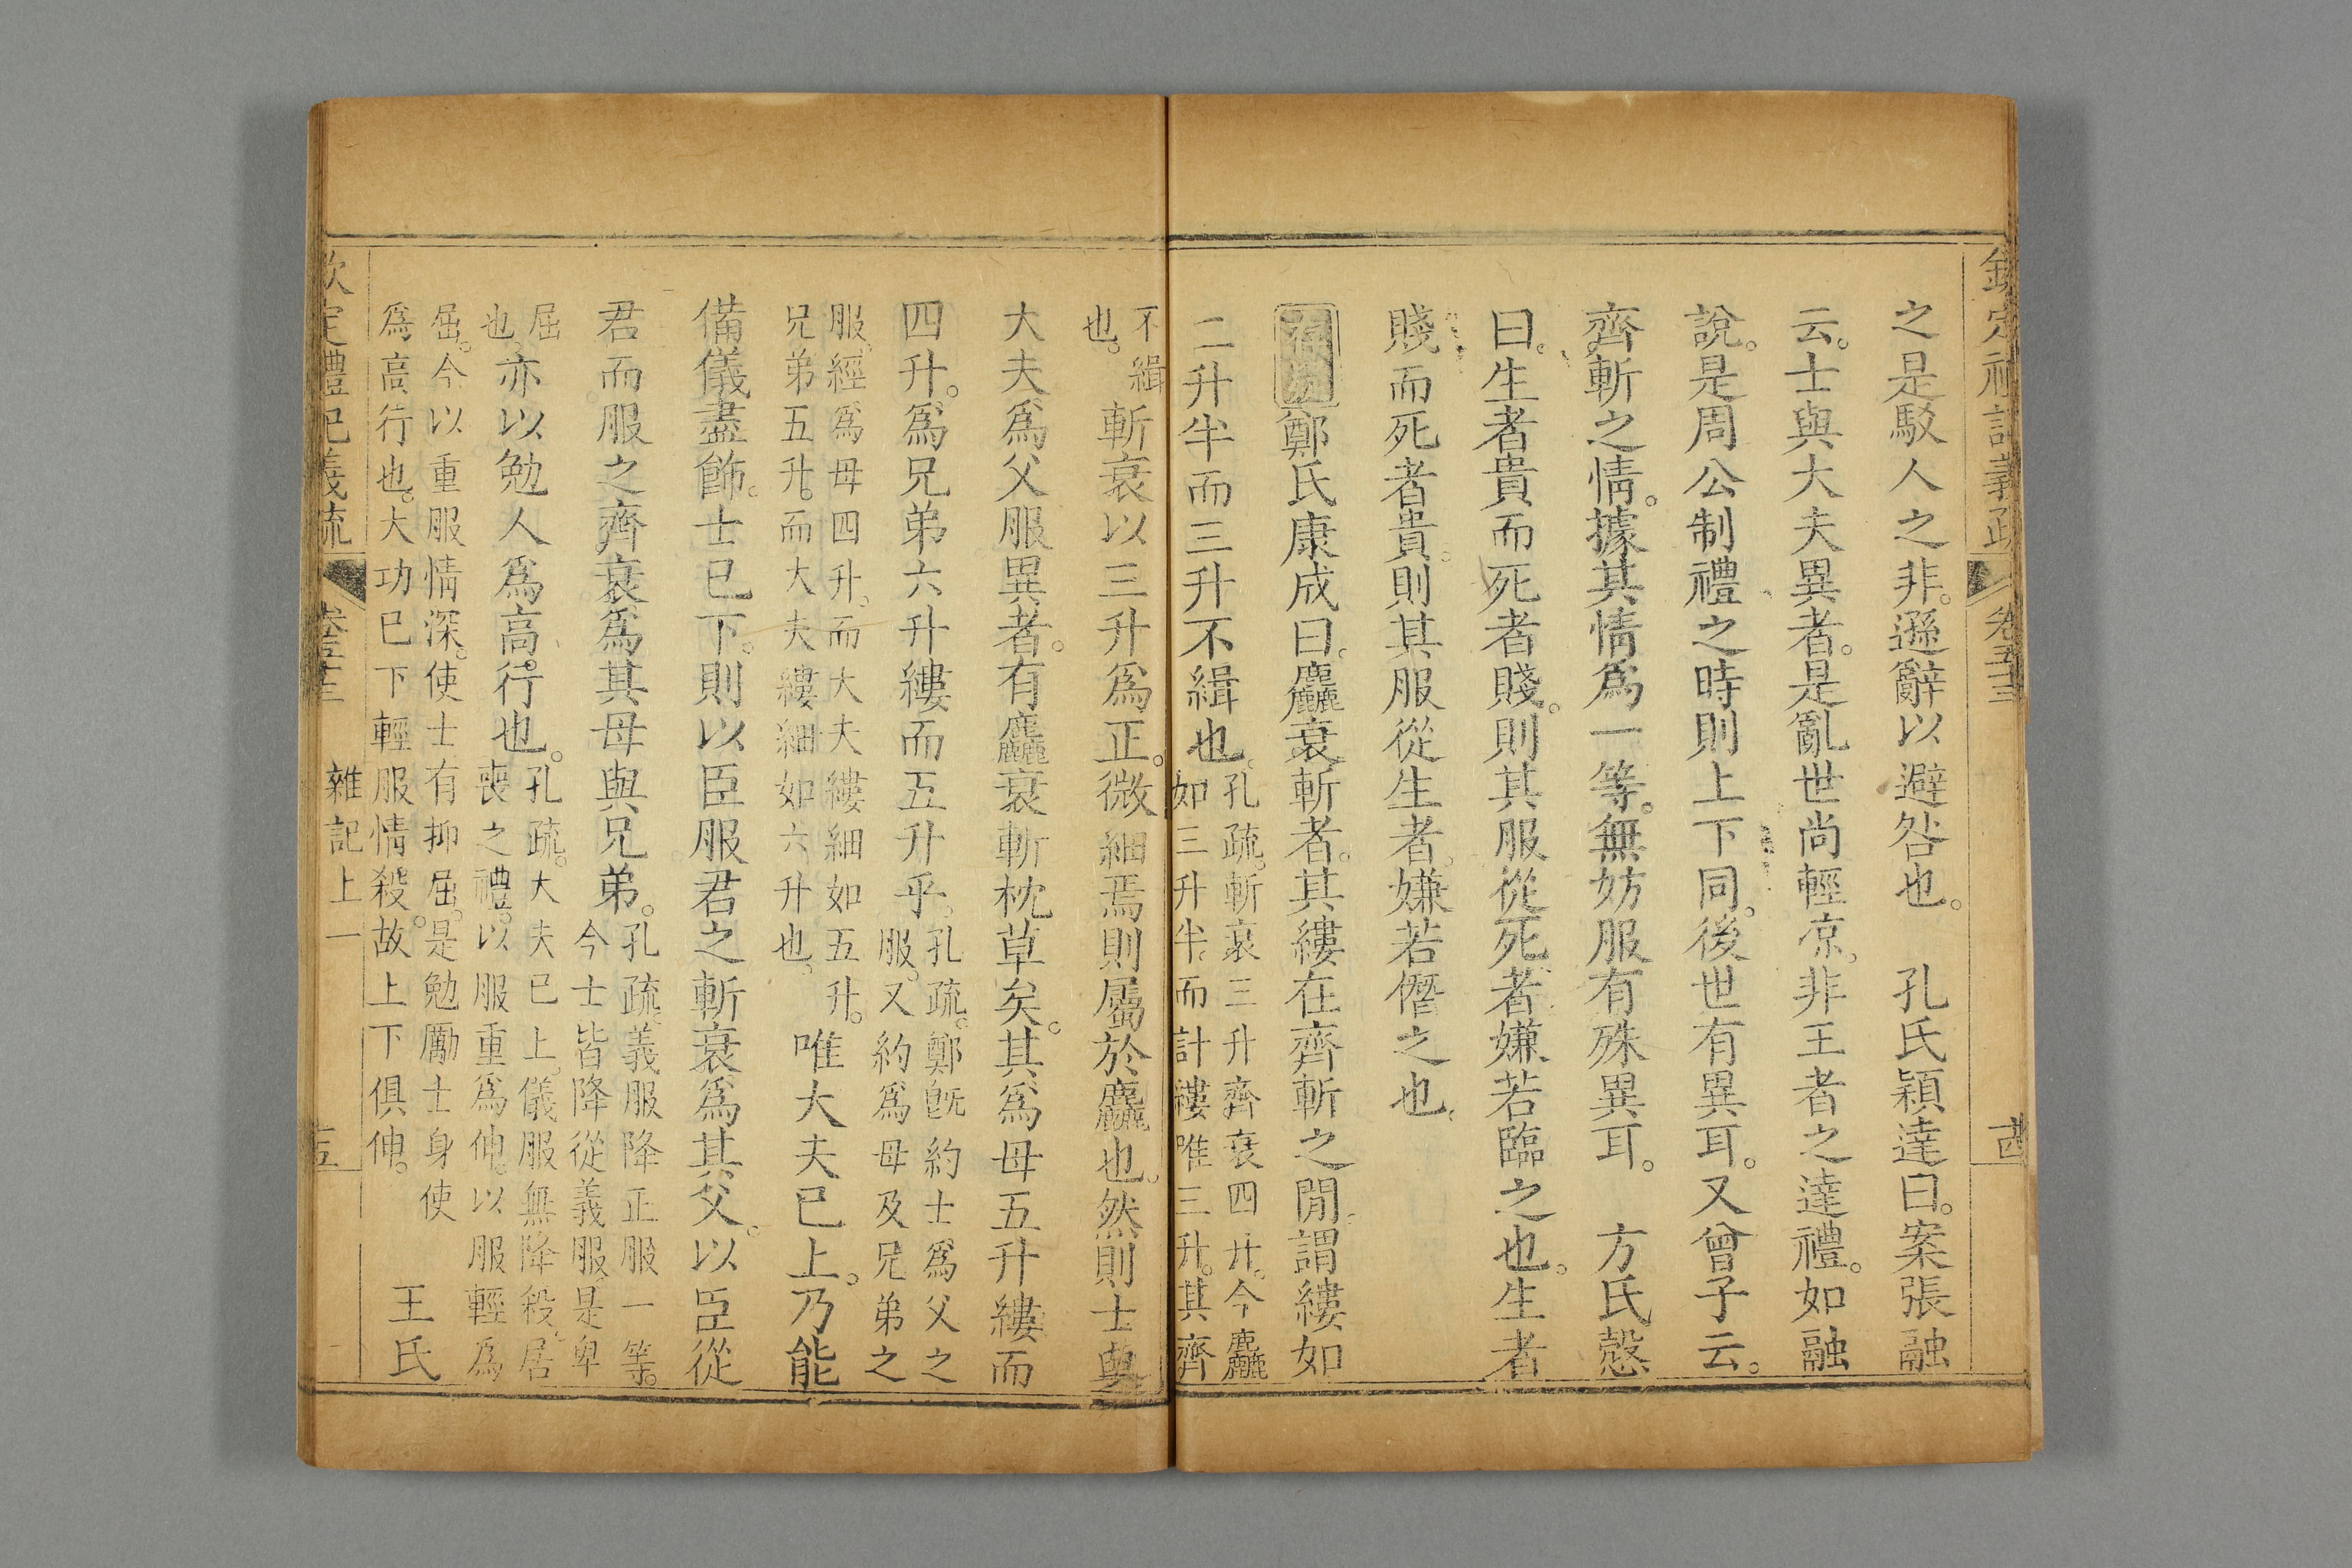 欽定禮記義疏 卷五十三 古
之是駁人之非。遜辭以避咎也。 孔氏穎達曰。案張融
云。士與大夫異者。是亂世尚輕涼。非王者之達禮。如融
說。是周公制禮之時則上下同。後世有異耳。又曾子云。
齊斬之情。據其情為一等。無妨服有殊異耳。 方氏慤
曰。生者貴而死者賤。則其服從死者嫌若臨之也。生者
賤而死者貴。則其服從生者。嫌若僭之也。
鄭氏康成曰。麤衰斬者。其縷在齊斬之閒。謂縷如
二升半而三升不緝也。
孔疏。斬衰三升齊衰四升。今麤
如三升半。而計縷唯三升。其齊
不緝
也。
斬衰以三升為正。微細焉則屬於麤也。然則士與
大夫為父服異者。有麤衰斬枕草矣。其為母五升縷而
四升。為兄弟六升縷而五升乎。
孔疏。鄭旣約士為父之
服。又約為母及兄弟之
服。經為母四升。而大夫縷細如五升。
兄弟五升。而大夫縷細如六升也。
唯大夫已上。乃能
備儀盡飾。士已下。則以臣服君之斬衰為其父。以臣從
君而服之齊衰為其母與兄弟。
孔疏。義服降正服一等。
今士皆降從義服。是卑
屈
也。
亦以勉人為高行也。
孔疏。大夫已上。儀服無降殺。居
喪之禮。以服重為伸。以服輕為
屈。今以重服情深。使士有抑屈。是勉勵士身使
為高行也。大功已下輕服情殺。故上下俱伸。
王氏
欽定禮記義疏 卷五十三 雜記上一